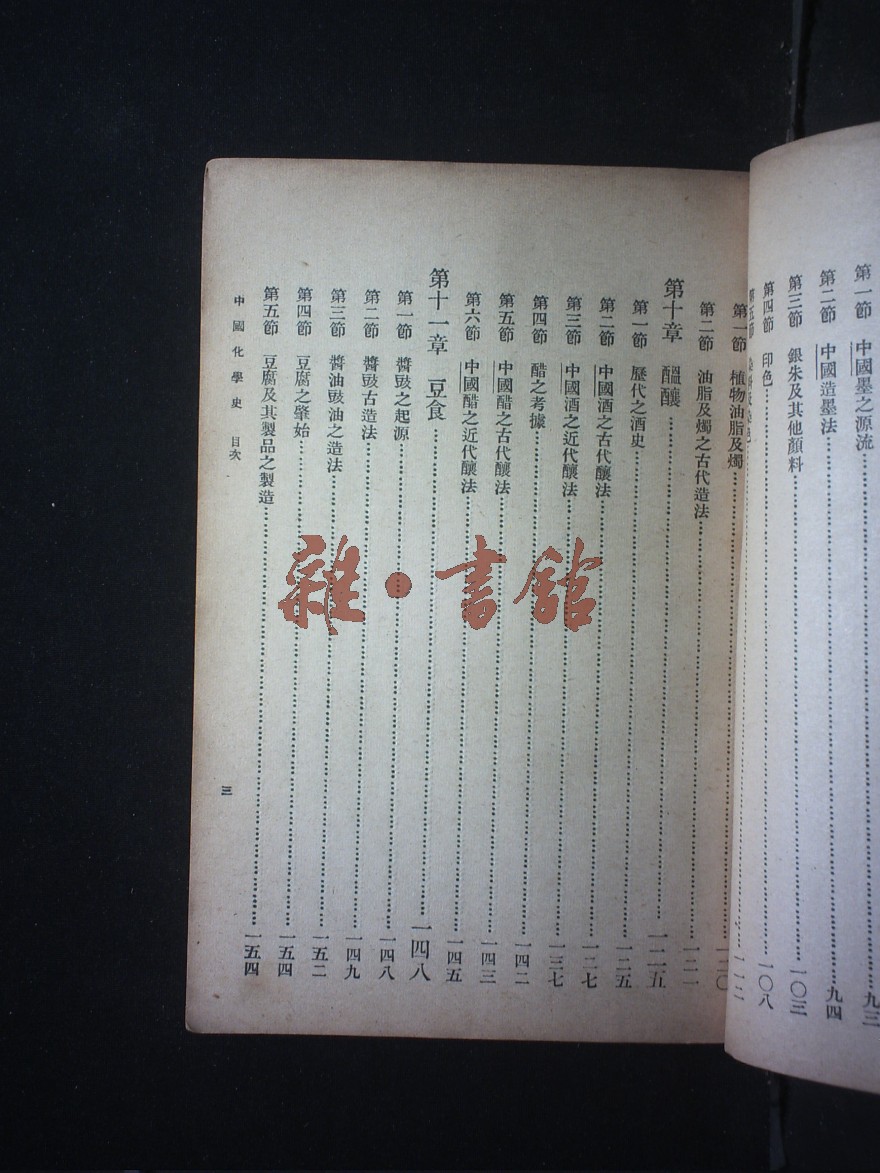 第一節　中國墨之源流……九三
第二節　中國造墨法……九四
第三節　銀朱及其他顏料……一〇三
第四節　印色……一〇八
第五節
第一節　植物油脂及燭
第二節　油脂及燭之古代造法……一二一
第十章　醞釀……一二五
第一節　歷代之酒史……一二五
第二節　中國酒之古代釀法……一二七
第三節　中國酒之近代釀法……一三七
第四節　醋之考據……一四二
第五節　中國醋之古代釀法……一四三
第六節　中國醋之近代釀法……一四五
第十一章　豆食……一四八
第一節　醬豉之起源……一四八
第二節　醬豉古造法……一四九
第三節　醬油豉油之造法……一五二
第四節　豆腐之肇始……一五四
第五節　豆腐及其製品之製造……一五四
中國化學史　目次
三
雜·書館